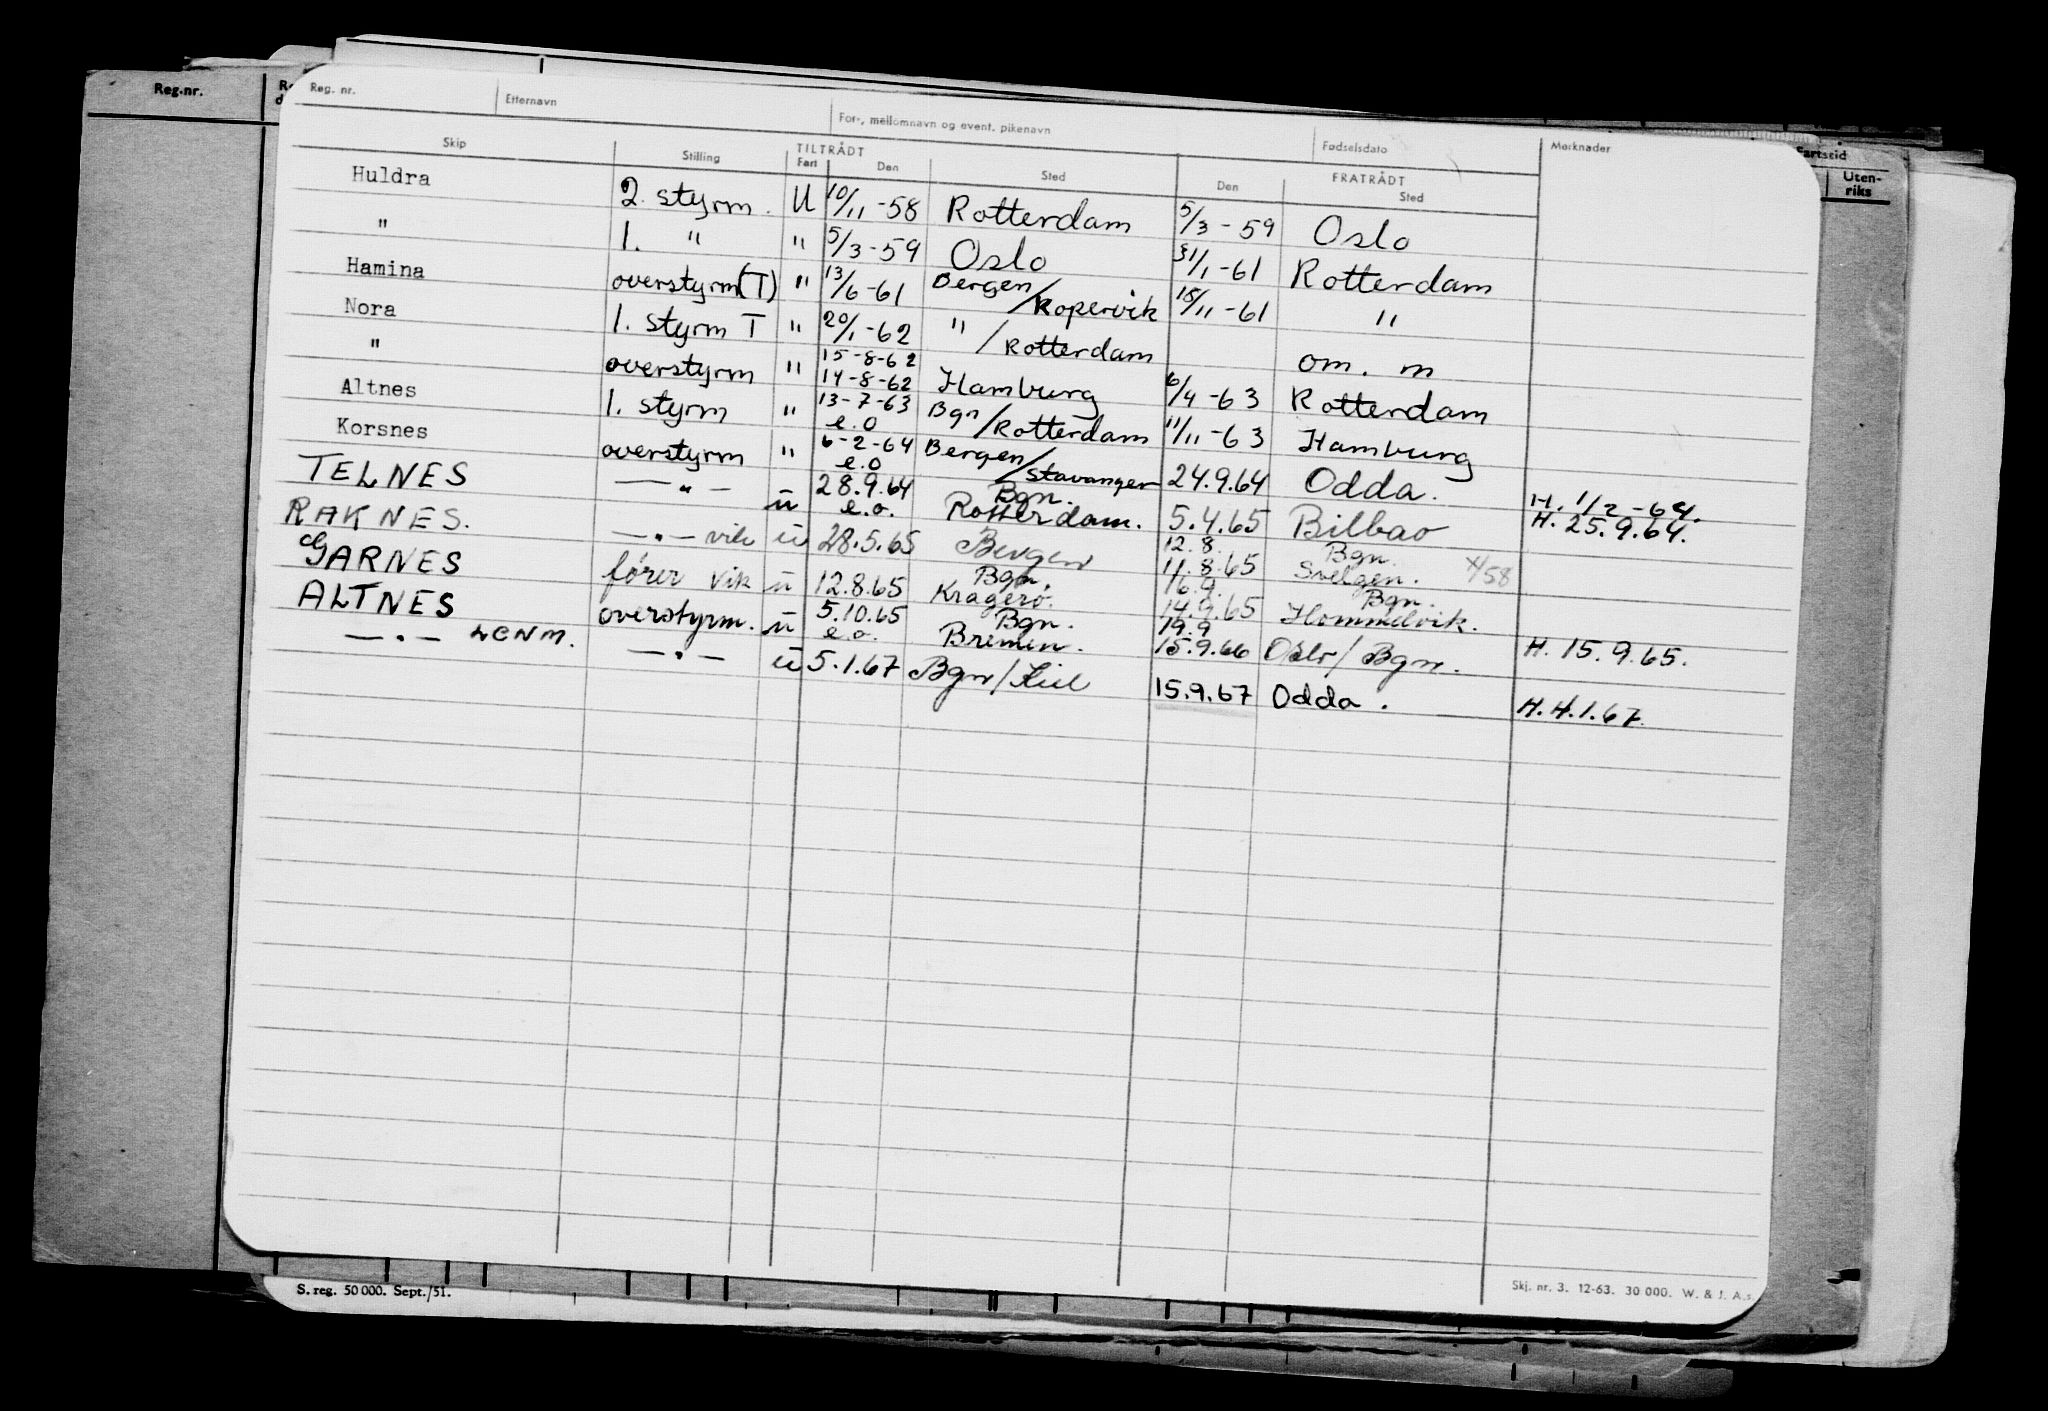 Reg.nr.
Reg. nr. Etternavn For-, mellomnavn og event. pikenavn Fødselsdato Merknader Fartstid
Uten-
riks
Skip Stilling TILTRÅDT FRATRÅDT
Fart Den Sted Den Sted
Huldra 2. styrm. U 10/11-58 Rotterdam 5/3-59 Oslo
" 1. " " 5/3-59 Oslo 31/1-61 Rotterdam
Hamina overstyrm(T) " 13/6-61 Bergen/Kopervik 15/11-61 "
Nora 1. styrm T " 20/1-62 "/Rotterdam om. m
" overstyrm " 15-8-62 14-8-62 Hamburg 6/4-63 Rotterdam
Altnes 1. styrm " 13-7-63 e.o Bgn/Rotterdam 11/11-63 Hamburg
Korsnes overstyrm " 6-2-64 e.o Bergen/Stavanger 24.9.64 Odda. H. 1/2-64.
TELNES —"— ü 28.9.64 e.o. Bgn. Rotterdam. 5.4.65 Bilbao H. 25.9.64.
RAKNES. —"— vik ü 28.5.65 Bergen 12.8. 11.8.65 Bgn. Svelgen. X/58
GARNES fører vik ü 12.8.65 Bgn. Kragerø. 16.9. 14.9.65 Bgn. Hommelvik.
ALTNES overstyrm. ü 5.10.65 e.o. Bgn. Bremen. 19.9 15.9.66 Oslo/Bgn. H. 15.9.65.
—"— LCNM. —"— ü 5.1.67 Bgn/Kiel 15.9.67 Odda. H. 4.1.67.
S. reg. 50 000. Sept./51.
Skj. nr. 3. 12-63. 30 000. W. & J. A.s.